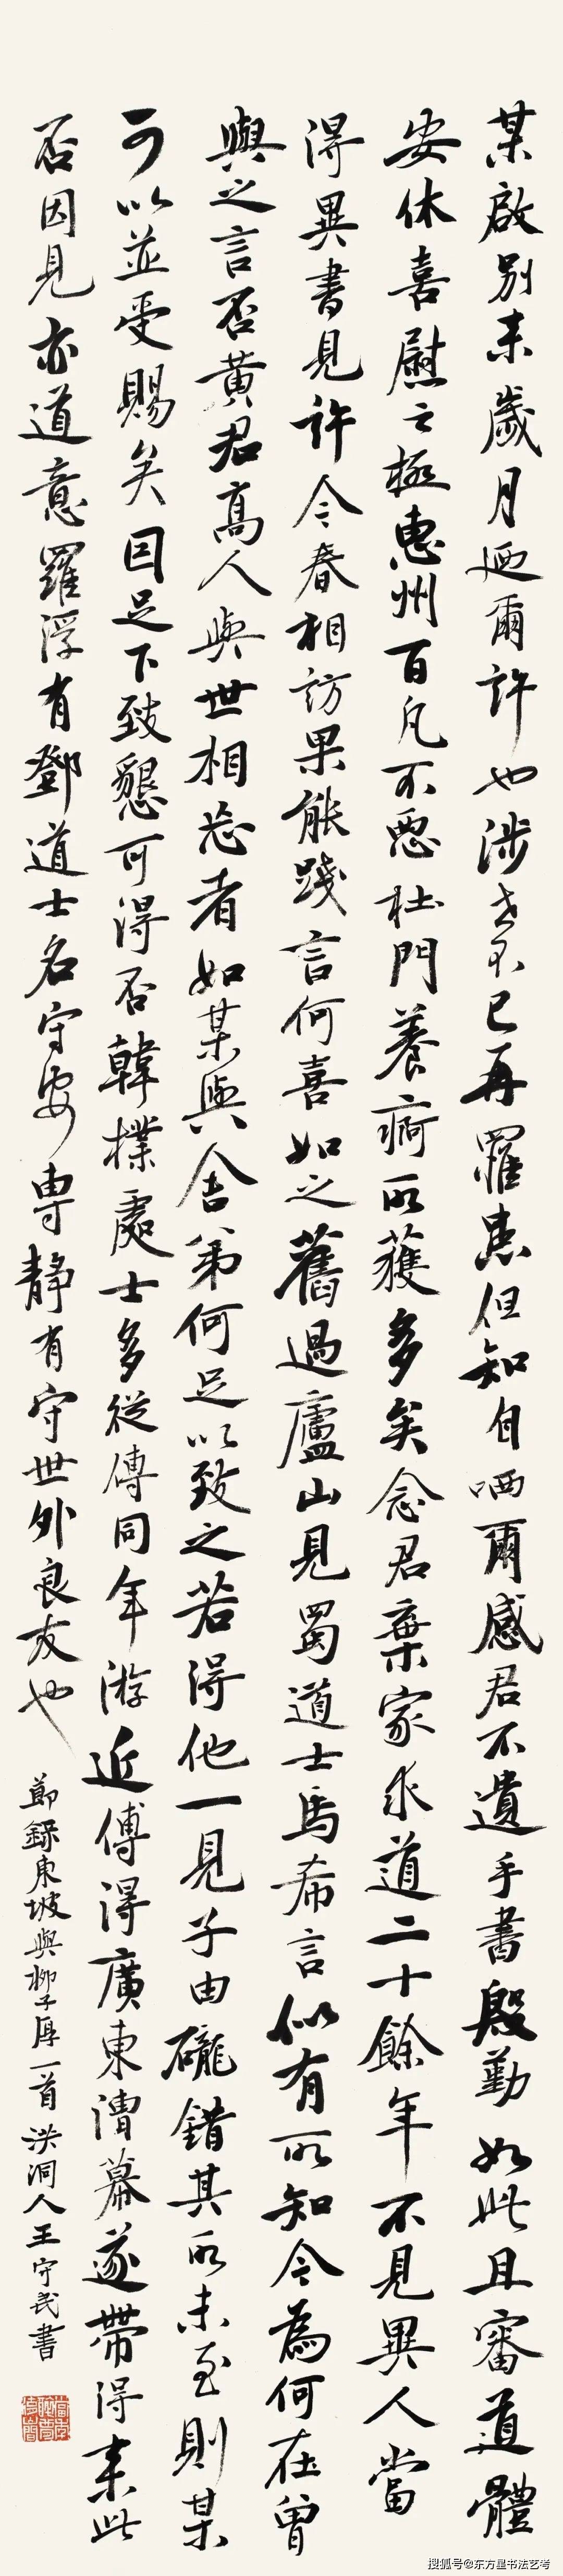 某啟別來歲月乃爾許也涉世不已再罹患但知自哂爾感君不遺手書殷勤如此且審道體
安休喜慰之極惠州百凡不惡杜門養痾所獲多矣念君棄家求道二十餘年不見異人當
得異書見許今春相訪果能踐言何喜如之舊過廬山見蜀道士馬希言似有所知今為何在曾
與之言否黃君高人與世相忘者如某與舍弟何足以致之若得他一見子由礲錯其所未至則某
可以並受賜矣因足下致懇可得否韓樸處士多從傅同年游近傅得廣東漕幕遂帶得來此
否因見亦道意羅浮有鄧道士名守安專靜有守世外良友也
節錄東坡與柳子厚一首洪洞人王守民書
搜狐号@东方星书法艺考